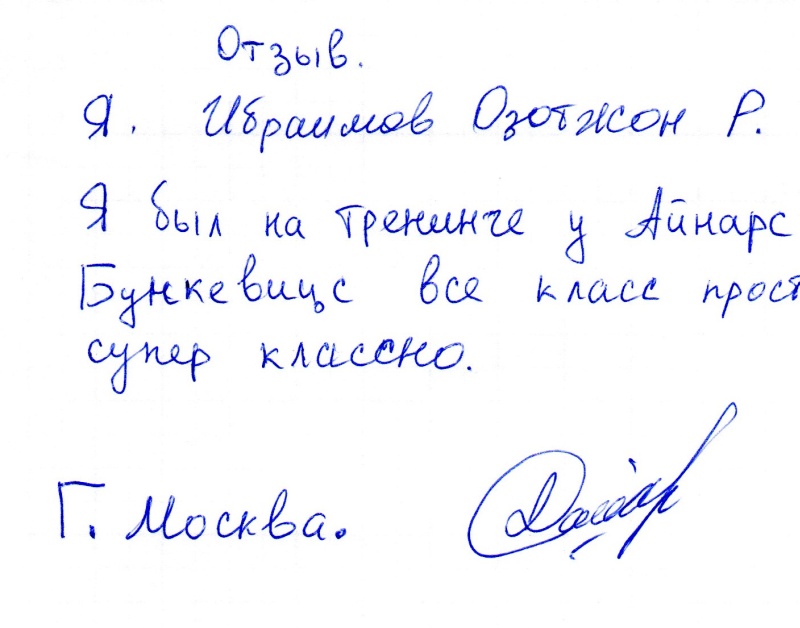 Отзыв.
Я. Ибраимов Озотжон Р.
Я был на тренинге у Айнарс
Бункевицс все класс прост
супер классно.
Г. Москва.